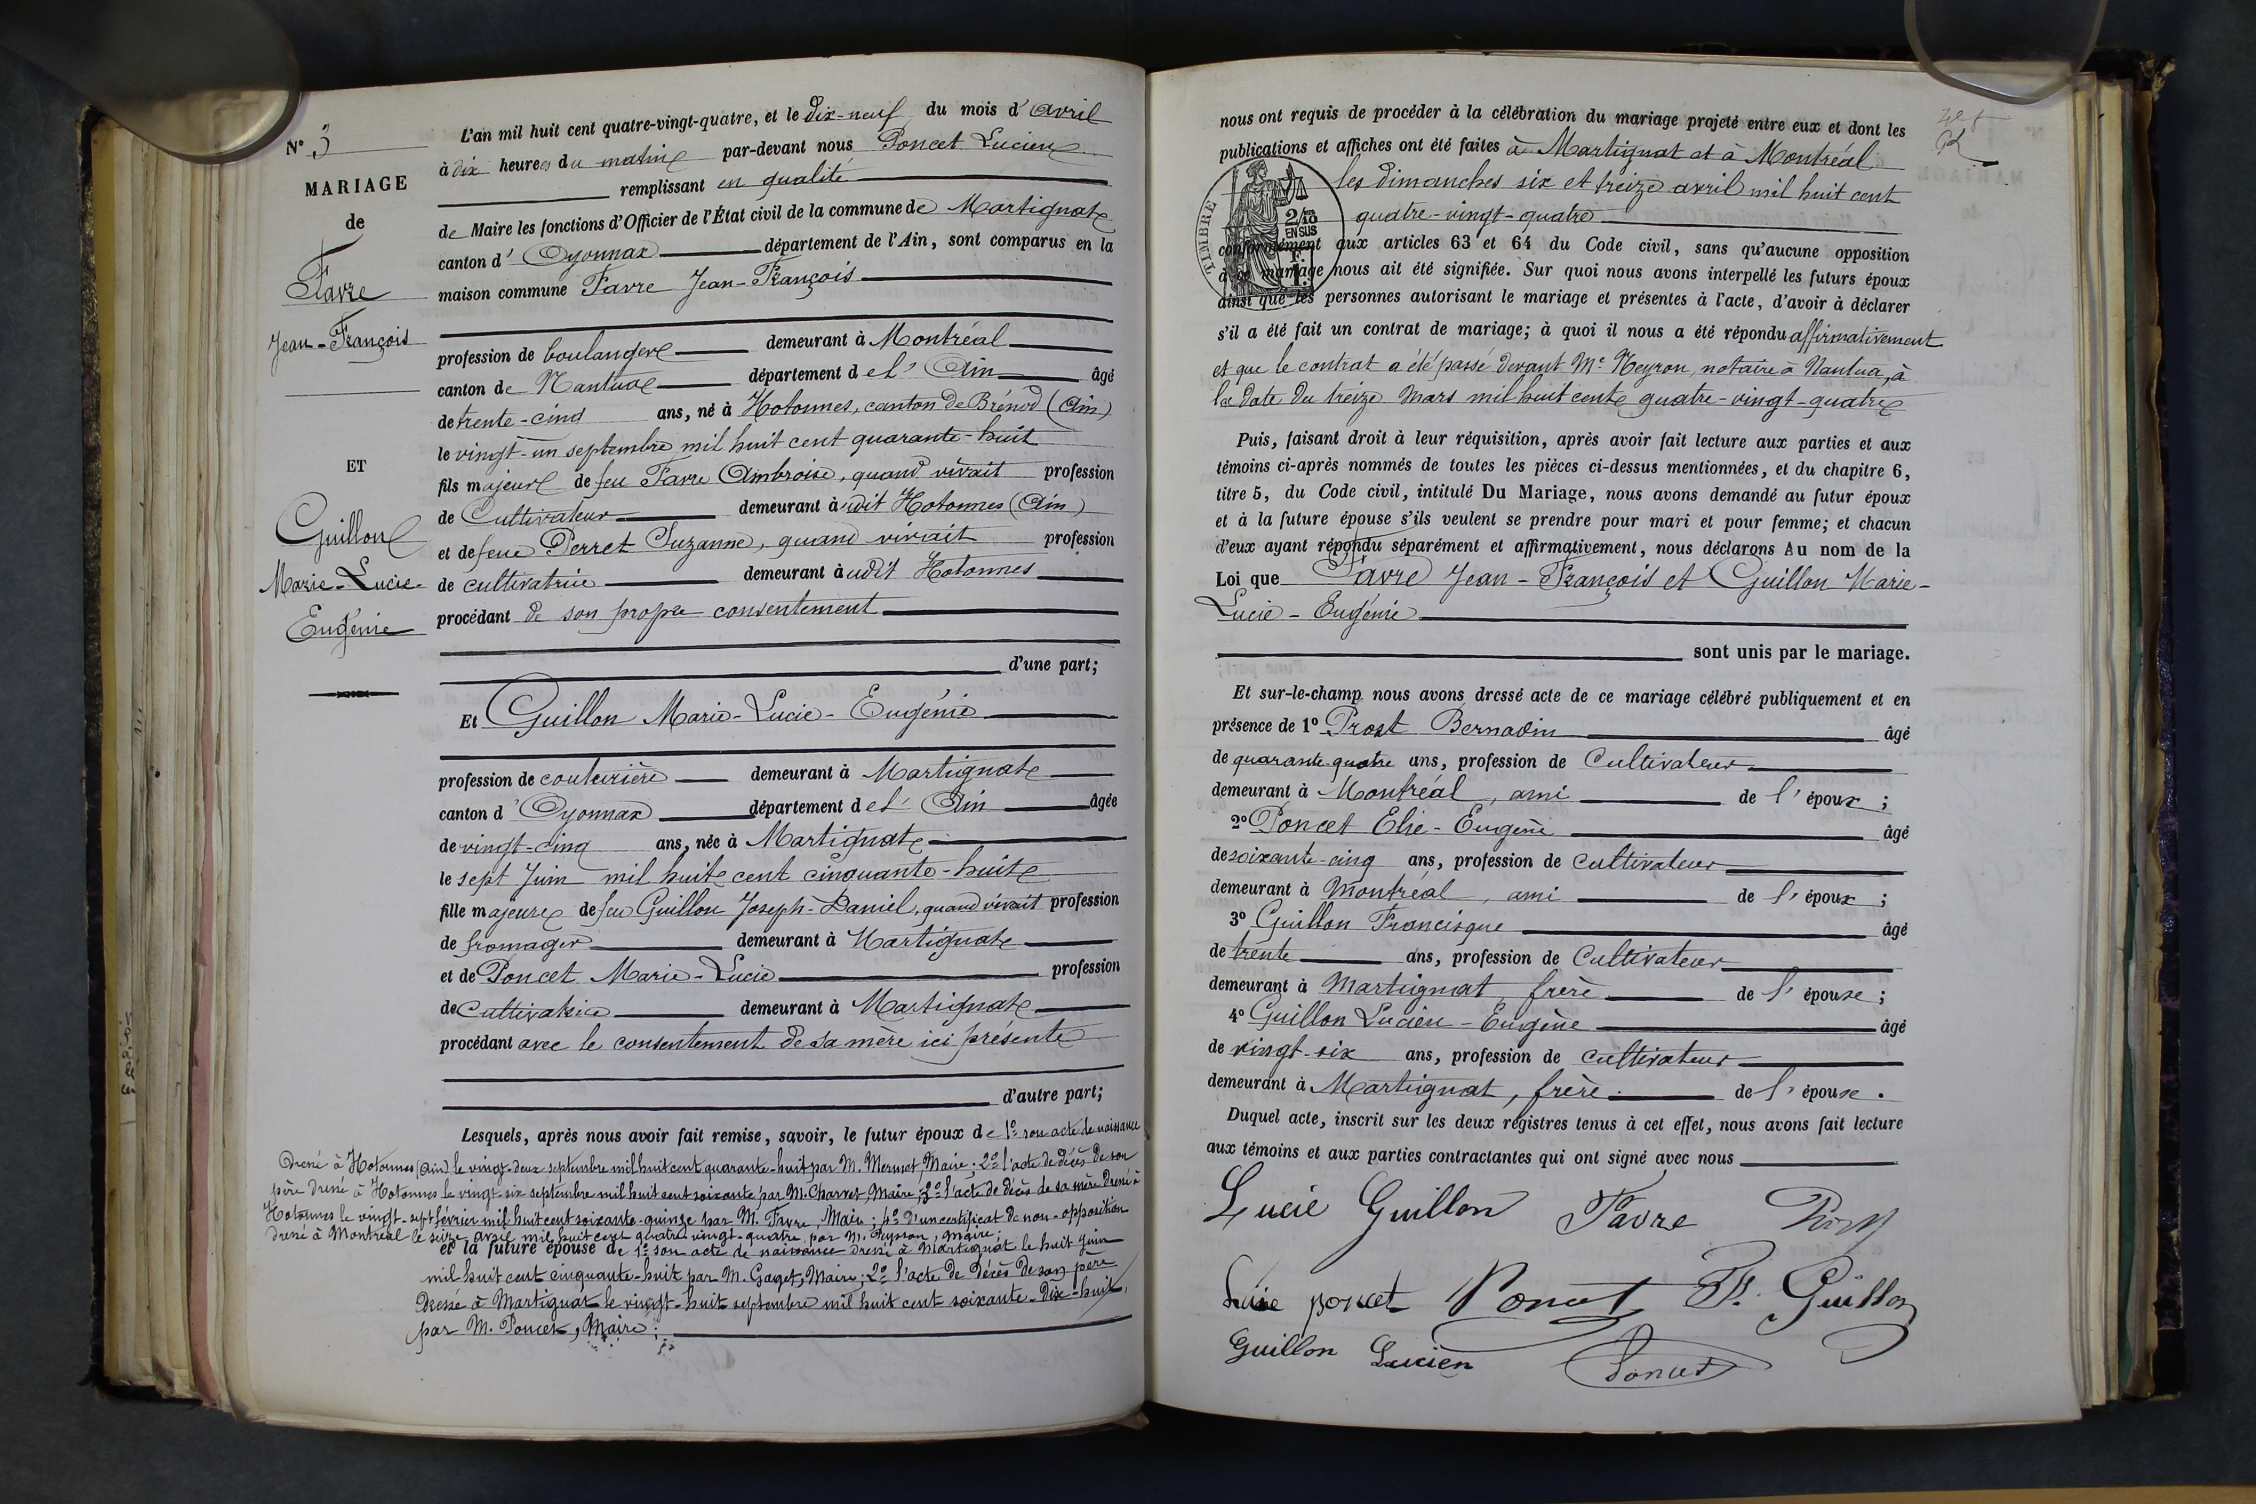 N° 3
MARIAGE
de
Favre
Jean-François
ET
Guillon
Marie-Lucie-
Eugénie
L'an mil huit cent quatre-vingt-quatre, et le dix-neuf du mois d'avril
à dix heures du matin par-devant nous Poncet Lucien
remplissant en qualité
de Maire les fonctions d'Officier de l'État civil de la commune de Martignat
canton d'Oyonnax département de l'Ain, sont comparus en la
maison commune Favre Jean-François
profession de boulanger demeurant à Montréal
canton de Nantua département de l'Ain âgé
de trente-cinq ans, né à Hotonnes, canton de Brénod (Ain)
le vingt-un septembre mil huit cent quarante-huit
fils majeur de feu Favre Ambroise, quand vivait profession
de Cultivateur demeurant à udit Hotonnes (Ain)
et de feue Perret Suzanne, quand vivait profession
de cultivatrice demeurant à udit Hotonnes
procédant de son propre consentement
d'une part;
Et Guillon Marie-Lucie-Eugénie
profession de couturière demeurant à Martignat
canton d'Oyonnax département de l'Ain âgée
de vingt-cinq ans, née à Martignat
le sept Juin mil huit cent cinquante-huit
fille majeure de feu Guillon Joseph-Daniel, quand vivait profession
de fromager demeurant à Martignat
et de Poncet Marie-Lucie profession
de Cultivatrice demeurant à Martignat
procédant avec le consentement de sa mère ici présente
d'autre part;
Lesquels, après nous avoir fait remise, savoir, le futur époux de 1° son acte de naissance
dressé à Hotonnes (Ain) le vingt-deux septembre mil huit cent quarante-huit par M. Maire; 2° l'acte de décès de son
père dressé à Hotonnes le vingt-six septembre mil huit cent soixante par M. Charvet, Maire; 3° l'acte de décès de sa mère dressé à
Hotonnes le vingt-sept février mil huit cent soixante-quinze par M. Favre, Maire; 4° d'un certificat de non-opposition
dressé à Montréal le seize avril mil huit cent quatre-vingt-quatre par M. Maire;
et la future épouse de 1° son acte de naissance dressé à Martignat le huit Juin
mil huit cent cinquante-huit par M. Gaget, Maire; 2° l'acte de décès de son père
dressé à Martignat le vingt-huit septembre mil huit cent soixante-dix-huit,
par M. Poncet, Maire;
nous ont requis de procéder à la célébration du mariage projeté entre eux et dont les
publications et affiches ont été faites à Martignat et à Montréal
les dimanches six et treize avril mil huit cent
quatre-vingt-quatre
TIMBRE
2/10
EN SUS
F.
1.
conformément aux articles 63 et 64 du Code civil, sans qu'aucune opposition
à ce mariage nous ait été signifiée. Sur quoi nous avons interpellé les futurs époux
ainsi que les personnes autorisant le mariage et présentes à l'acte, d'avoir à déclarer
s'il a été fait un contrat de mariage; à quoi il nous a été répondu affirmativement
et que le contrat a été passé devant Me Neyron, notaire à Nantua, à
la date du treize Mars mil huit cent quatre-vingt-quatre
Puis, faisant droit à leur réquisition, après avoir fait lecture aux parties et aux
témoins ci-après nommés de toutes les pièces ci-dessus mentionnées, et du chapitre 6,
titre 5, du Code civil, intitulé Du Mariage, nous avons demandé au futur époux
et à la future épouse s'ils veulent se prendre pour mari et pour femme; et chacun
d'eux ayant répondu séparément et affirmativement, nous déclarons Au nom de la
Loi que Favre Jean-François et Guillon Marie-
Lucie-Eugénie
sont unis par le mariage.
Et sur-le-champ nous avons dressé acte de ce mariage célébré publiquement et en
présence de 1° Prost Bernadin âgé
de quarante quatre ans, profession de Cultivateur
demeurant à Montréal, ami de l'époux;
2° Poncet Elie-Eugène âgé
de soixante-cinq ans, profession de cultivateur
demeurant à Montréal, ami de l'époux;
3° Guillon Francisque âgé
de trente ans, profession de Cultivateur
demeurant à Martignat, frère de l'épouse;
4° Guillon Lucien-Eugène âgé
de vingt-six ans, profession de cultivateur
demeurant à Martignat, frère de l'épouse.
Duquel acte, inscrit sur les deux registres tenus à cet effet, nous avons fait lecture
aux témoins et aux parties contractantes qui ont signé avec nous
Lucie Guillon Favre
Lucie poncet Poncet Fr. Guillon
Guillon Lucien Poncet